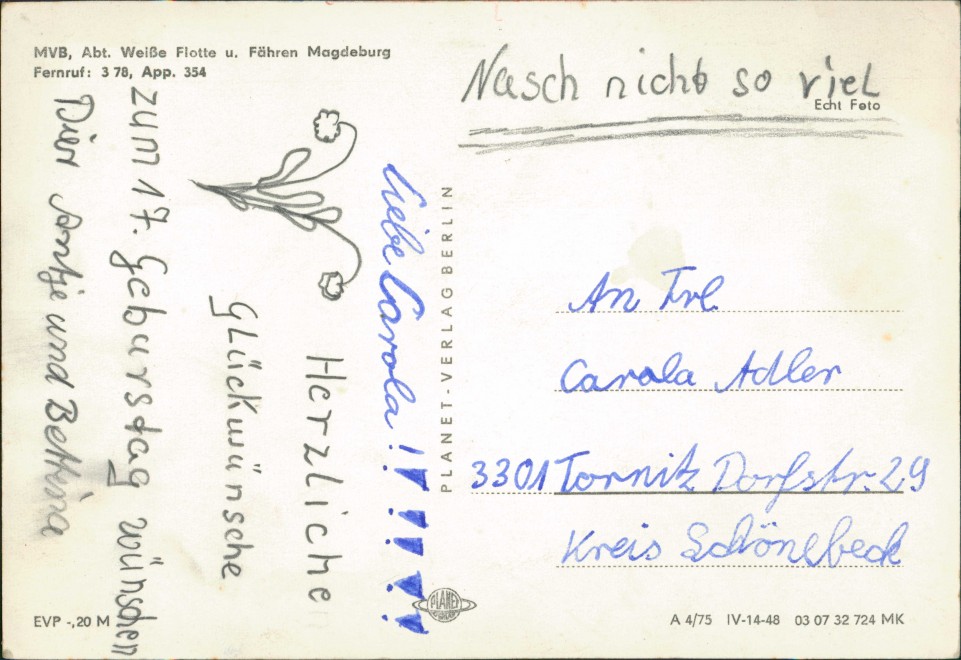 MVB, Abt. Weiße Flotte u. Fähren Magdeburg
Fernruf: 3 78, App. 354
Liebe Carola!!!!!!
Herzliche
Glückwünsche
zum 17. Geburstag wünschen
Dier Antje und Bettina
EVP -,20 M
PLANET-VERLAG BERLIN
PLANET
Nasch nicht so viel
Echt Foto
An Frl
Carola Adler
3301 Tornitz Dorfstr. 29
Kreis Schönebeck
A 4/75 IV-14-48 03 07 32 724 MK